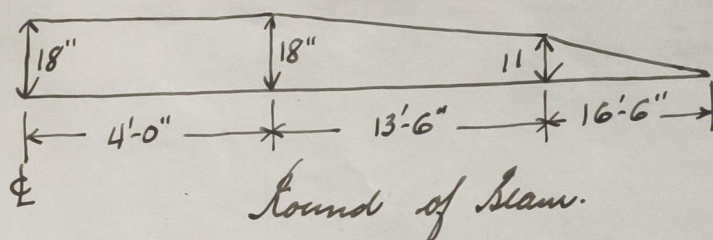 18" 18" 11
4'-0" 13'-6" 16'-6"
℄
Round of Beam.